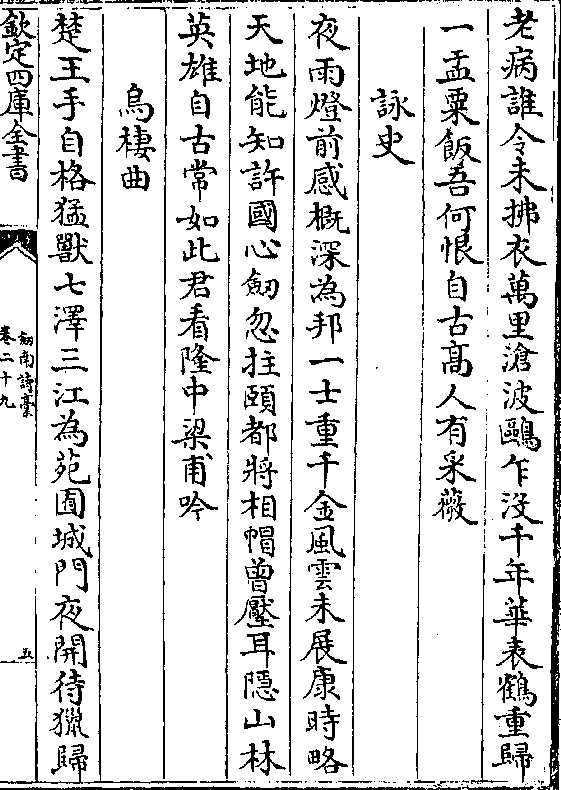 老病誰令未拂衣萬里滄波鷗乍没千年華表鶴重歸
一盂粟飯吾何恨自古高人有采薇
詠史
夜雨燈前感概深為邦一士重千金風雲未展康時略
天地能知許國心劒忽拄頤都將相帽曾壓耳隱山林
英雄自古常如此君看隆中梁甫吟
烏棲曲
楚王手自格猛獸七澤三江為苑囿城門夜開待獵歸
欽定四庫全書
劒南詩稾
卷二十九
五